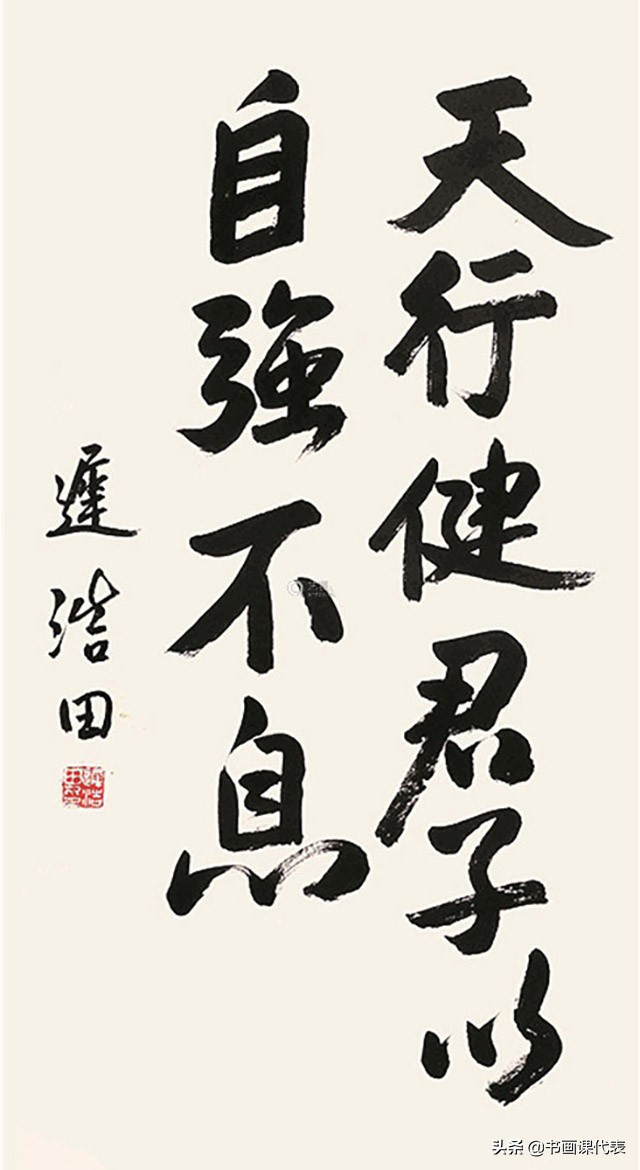 天行健君子以
自強不息
遲浩田
头条 @书画课代表